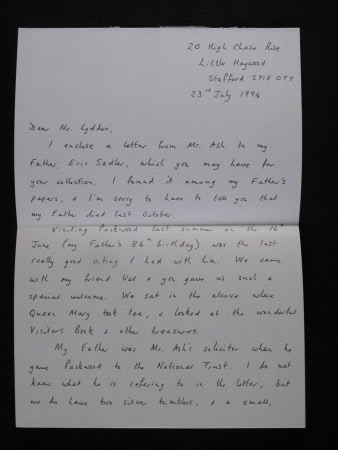 20 High Chase Rise
Little Haywood
Stafford ST18 0TY
23rd July 1994
Dear Mr. Lyddon,
I enclose a letter from Mr. Ash to my
Father, Eric Sadler, which you may have for
your collection. I found it among my Father's
papers, & I'm sorry to have to tell you that
my Father died last October.
Visiting Packwood last summer on the
June (my Father's 86th birthday) was the last
really good outing I had with him. We came
with my friend Val & you gave us such a
special welcome. We sat in the alcove where
Queen Mary took tea, & looked at the wonderful
Visitors Book & other treasures.
My Father was Mr. Ash's solicitor when he
gave Packwood to the National Trust. I do not
know what he is refering to in the letter, but
we do have two silver tumblers, & a small,